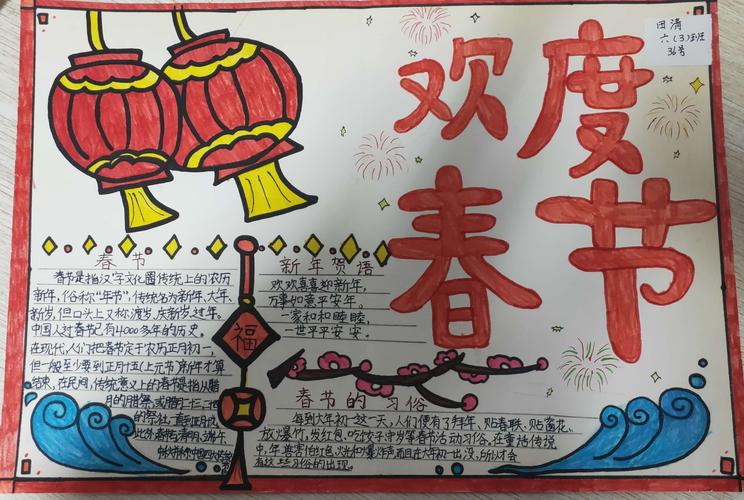 欢度
春节
田清
六(3)班
36号
春节
春节是指汉字文化圈传统上的农历
新年,俗称“年节”,传统名为新年、大年、
新岁,但口头上又称渡岁、庆新岁、过年。
中国人过春节已有4000多年的历史。
在现代,人们把春节定于农历正月初一,
但一般至少要到正月十五(上元节)新年才算
结束,在民间,传统意义上的春节是指从腊
月的腊祭,或腊月二十三、二四
的祭灶,直到正月
新年贺语
欢欢喜喜迎新年,
万事如意平安年。
一家和和睦睦,
一世平平安安。
福
春节的习俗
每到大年初一这一天,人们便有了拜年、贴春联、贴窗花、
放爆竹、发红包、吃饺子、守岁等春节活动习俗,在童话传说
中,年兽害怕红色、火光和爆炸声,而且在大年初一出没,所以才会
有这些习俗的出现。